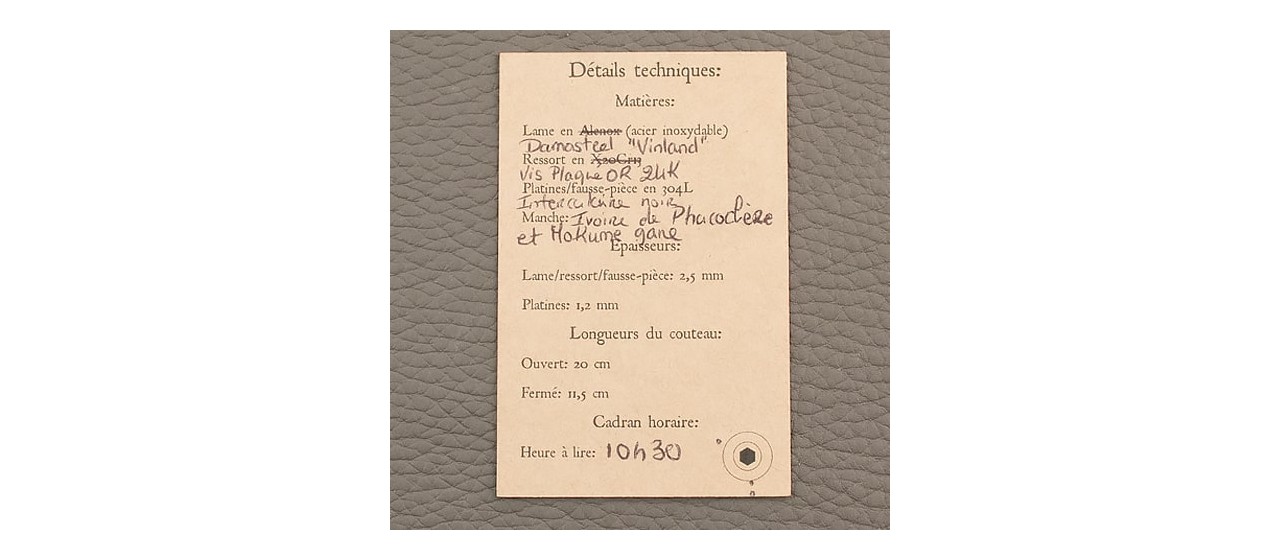 Détails techniques:
Matières:
Lame en Alenox (acier inoxydable)
Damasteel "Vinland"
Ressort en X20Cr13
Vis Plaque OR 24K
Platines/fausse-pièce en 304L
Intercalaire noir
Manche: Ivoire de Phacochère
et Mokume gane
Epaisseurs:
Lame/ressort/fausse-pièce: 2,5 mm
Platines: 1,2 mm
Longueurs du couteau:
Ouvert: 20 cm
Fermé: 11,5 cm
Cadran horaire:
Heure à lire: 10h30